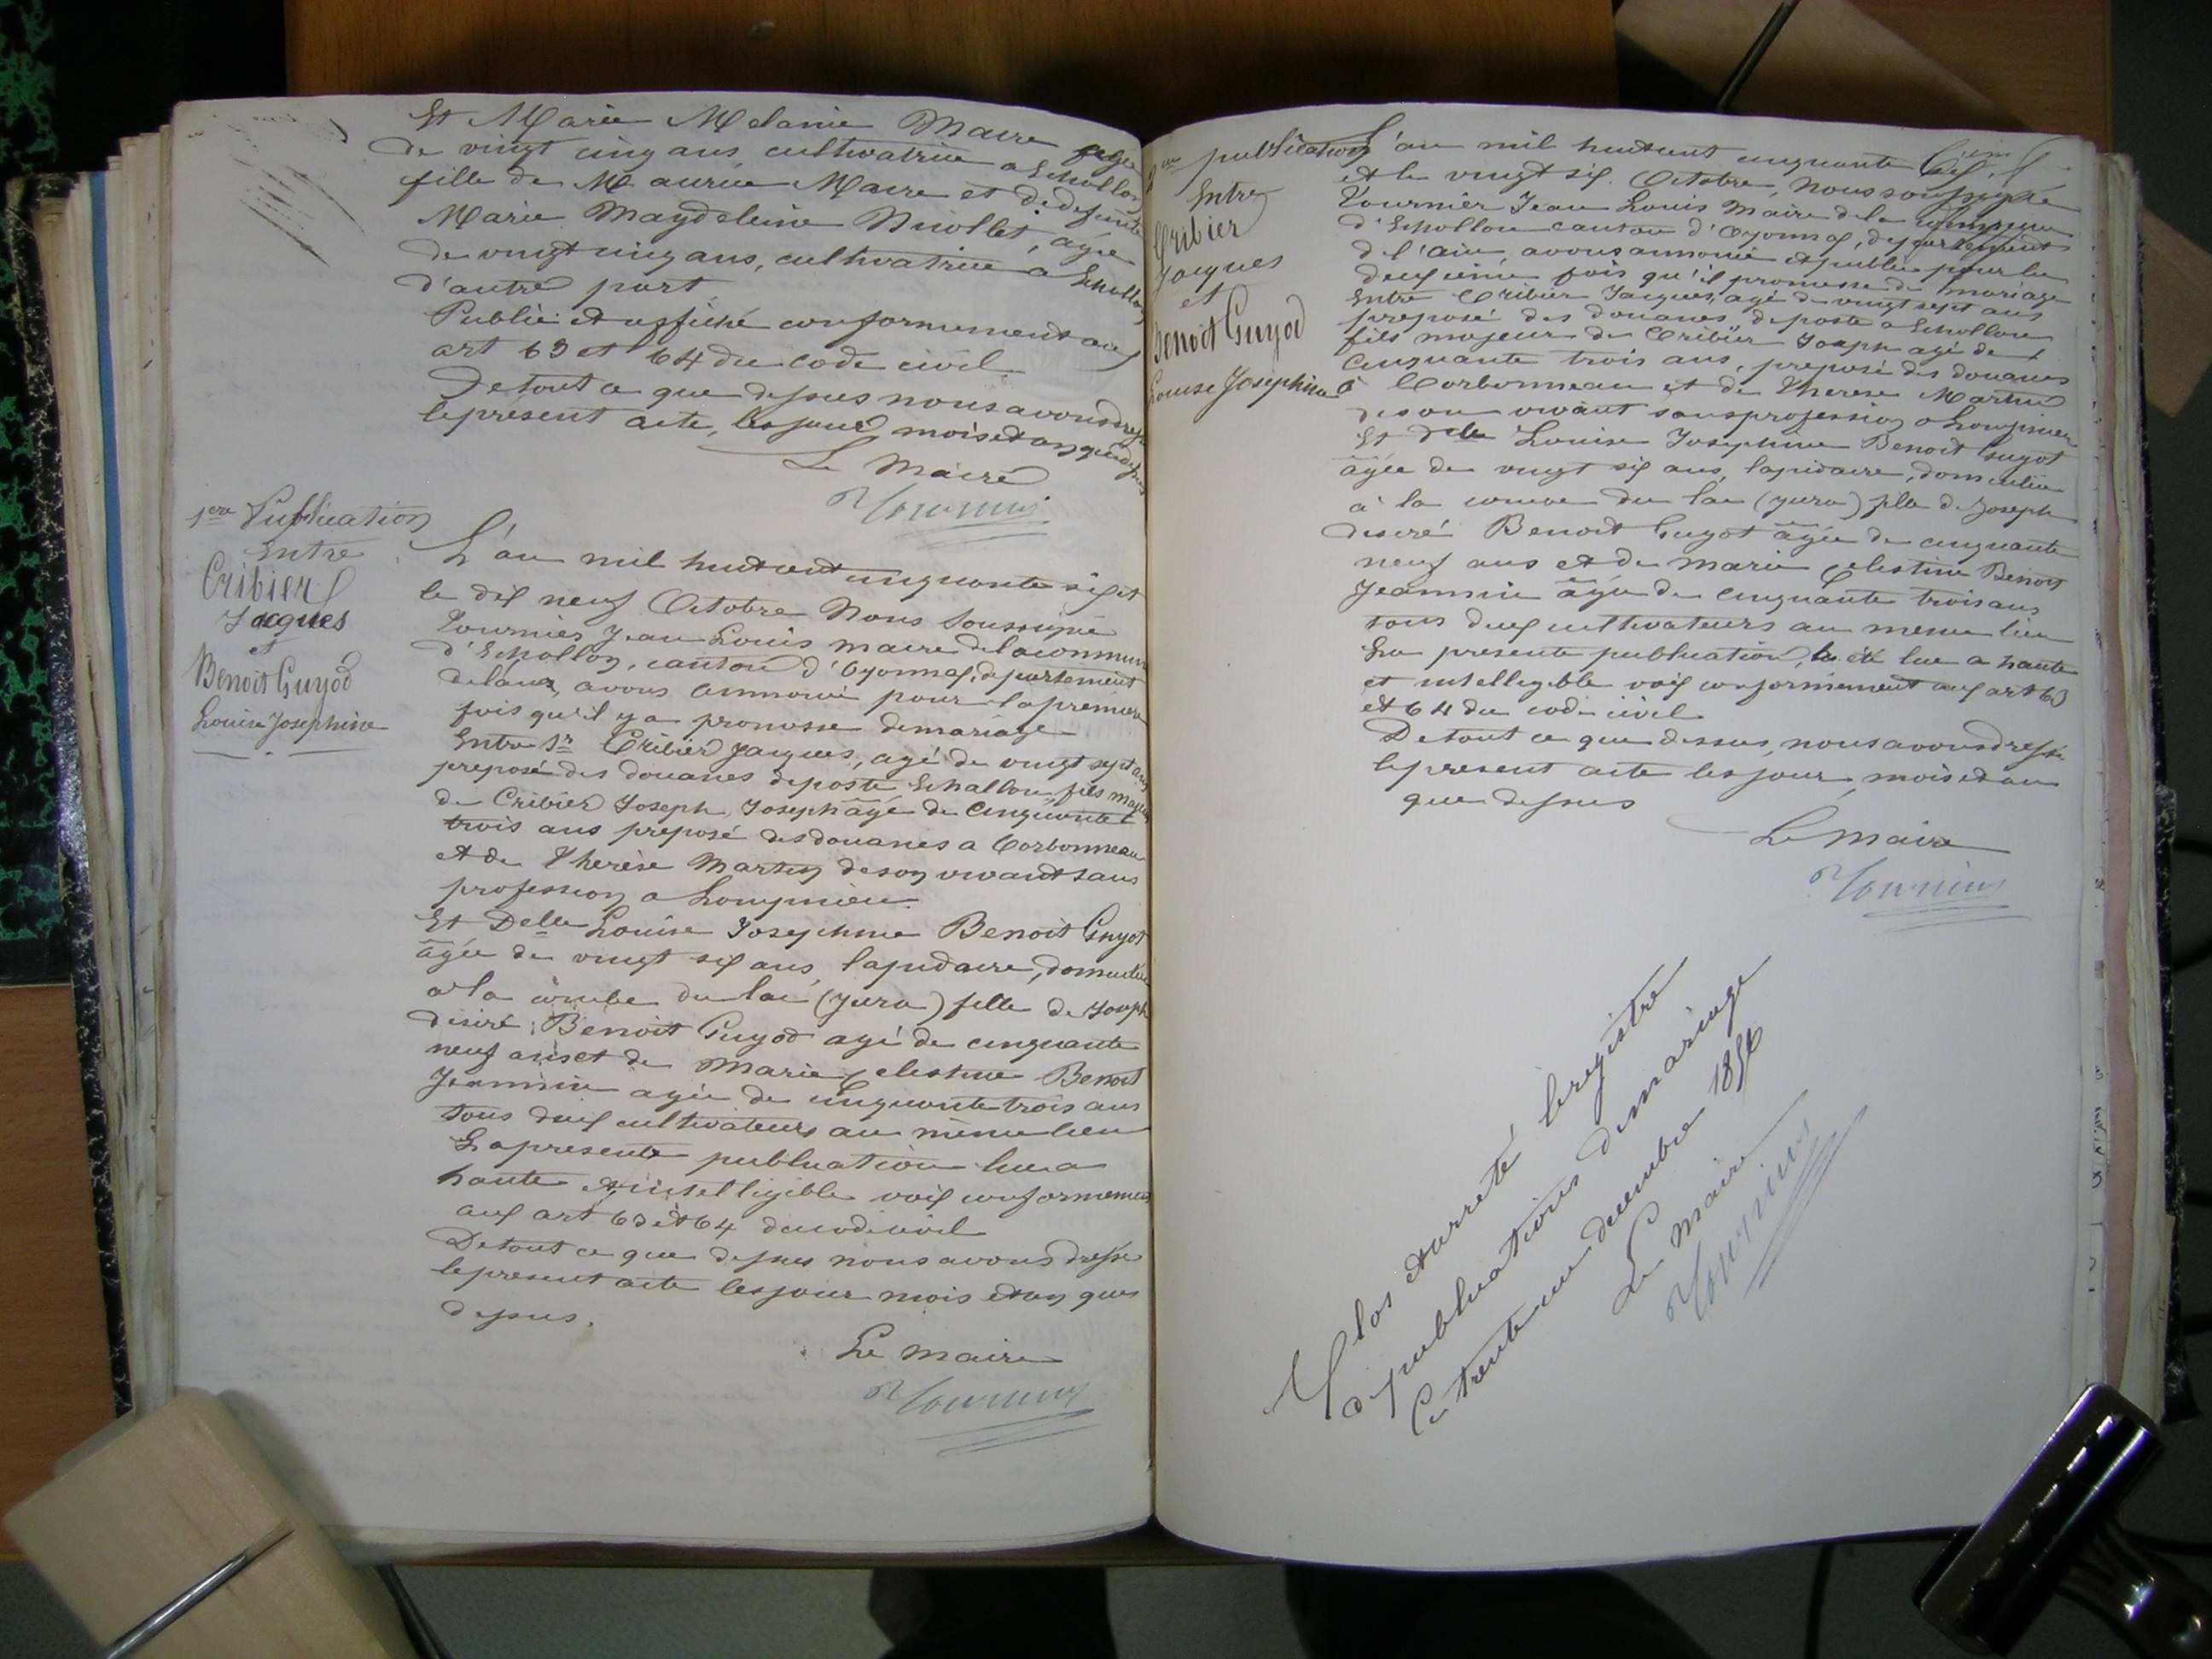 Et Marie Melanie Maire agée
de vingt cinq ans, cultivatrice a Echallon
fille de Maurice Maire et de defunte
Marie Magdeleine Niollet, agée
de vingt cinq ans, cultivatrice a Echallon
d'autre part
Publié et affiché conformement aux
art 63 et 64 du code civil
De tout ce que dessus nous avons dressé
le present acte, les jour mois et an que dessus
Le Maire
Tournier
1ere Publication
Entre
Cribier
Jacques
et
Benoit Guyod
Louise Josephine
L'an mil huit cent cinquante six et
le dix neuf Octobre Nous soussigné
Tournier Jean Louis maire de la commune
d'Echallon, canton d'Oyonnax, departement
de l'ain, avons annoncé pour la premiere
fois qu'il y a promesse de mariage
Entre Sr Cribier Jacques, agé de vingt sept ans
preposé des douanes de poste Echallon, fils majeur
de Cribier Joseph, Joseph agé de cinquante
trois ans preposé des douanes a Corbonneau
et de Therèse Martin de son vivant sans
profession a
Et Delle Louise Josephine Benoit Guyot
agée de vingt six ans, lapidaire, domiciliée
a la combe du lac (jura) fille de Joseph
désiré Benoit Guyod agé de cinquante
neuf ans et de Marie Celestine Benoit
Jeannin agée de cinquante trois ans
tous deux cultivateurs au même lieu
La presente publication lue a
haute et intelligible voix conformement
aux art 63 et 64 du code civil
De tout ce que dessus nous avons dressé
le present acte les jour mois et an que
dessus.
Le maire
Tournier
2me publication
Entre
Cribier
Jacques
et
Benoit Guyod
Louise Josephine
L'an mil huit cent cinquante six
et le vingt six Octobre, Nous soussigné
Tournier Jean Louis Maire de la commune
d'Echallon canton d'Oyonnax, departement
de l'ain, avons annoncé et publié pour la
deuxième fois qu'il promesse de mariage
Entre Cribier Jacques, agé de vingt sept ans
preposé des douanes, de poste a Echallon
fils majeur de Cribier Joseph agé de
cinquante trois ans, preposé des douanes
à Corbonneau et de Therese Martin
de son vivant sans profession a
Et delle Louise Josephine Benoit Guyot
âgée de vingt six ans, lapidaire, domiciliée
à la combe du lac (jura) fille de Joseph
desiré Benoit Guyot âgée de cinquante
neuf ans et de Marie Celestine Benoit
Jeannin âgée de cinquante trois ans
tous deux cultivateurs au meme lieu
La presente publication, a été lue a haute
et intelligible voix conformement aux art 63
et 64 du code civil
De tout ce que dessus, nous avons dressé
le present acte les jour, mois et an
que dessus
Le Maire
Tournier
Clos et arreté le registre
de publications de mariage
Ce trente un decembre 1856
Le Maire
Tournier